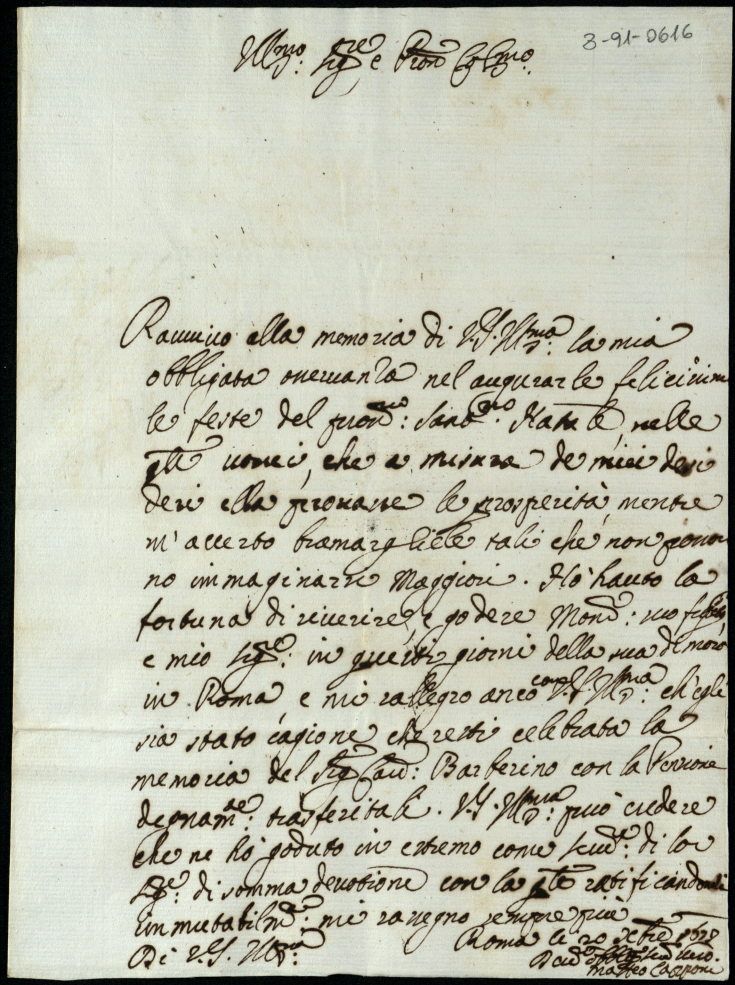 3-91-0616
Ill.mo Sig.re e Pron Col.mo
Rauuiuo alla memoria di V.S. Ill.ma la mia
obbligata osseruanza nel augurarle felicissim
le feste del pross.mo: Sant.mo Natale nelle
q.li uorrei, che a misura de miei desi
deri ella prouasse le prosperità mentre
m'accerto bramargliele tali che non posso
no immaginarsi Maggiori. Hò hauto la
fortuna di riuerire, e godere Mons.: suo
e mio Sig.re: in questi giorni della sua dimora
in Roma e mi rallegro anco con V.S. Ill.ma: ch'egli
sia stato cagione che resti celebrata la
memoria del Sig. Card: Barberino con la Penzione
degnam.te: trasferitali. V.S. Ill.ma: può credere
che ne hò goduto in estremo come seru.re: di lor
Sig.ri di somma deuotione con la q.le ratificandomi
immutabilm.te: mi rassegno sempre più
Di V.S. Ill.ma:
Roma li 20 Xbre
Matteo